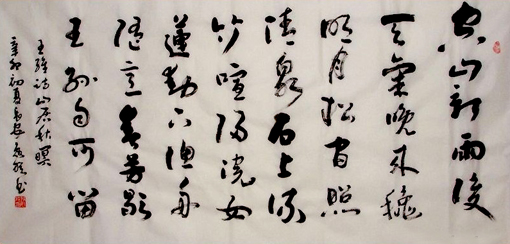 空山新雨後
天氣晚来穐
明月松间照
清泉石上流
竹喧歸浣女
蓮動下漁舟
随意春芳歇
王孫自可留
王維诗山居秋暝
辛卯初夏